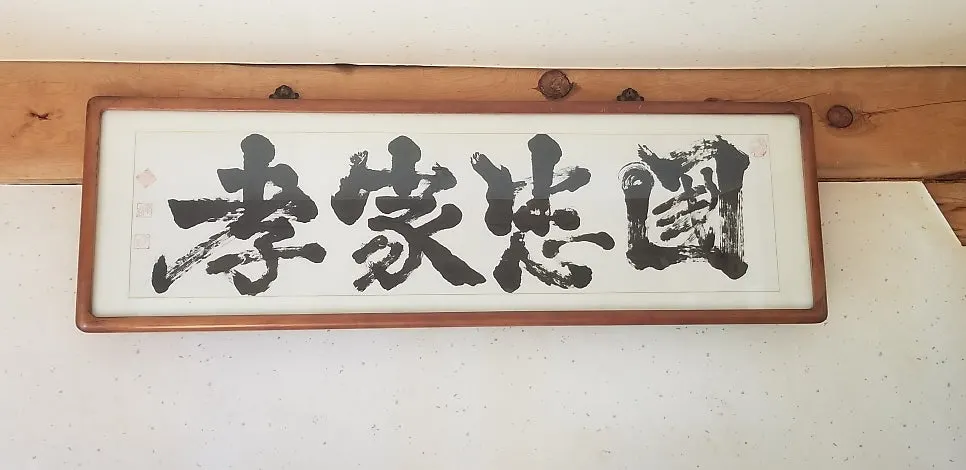 國忠家孝